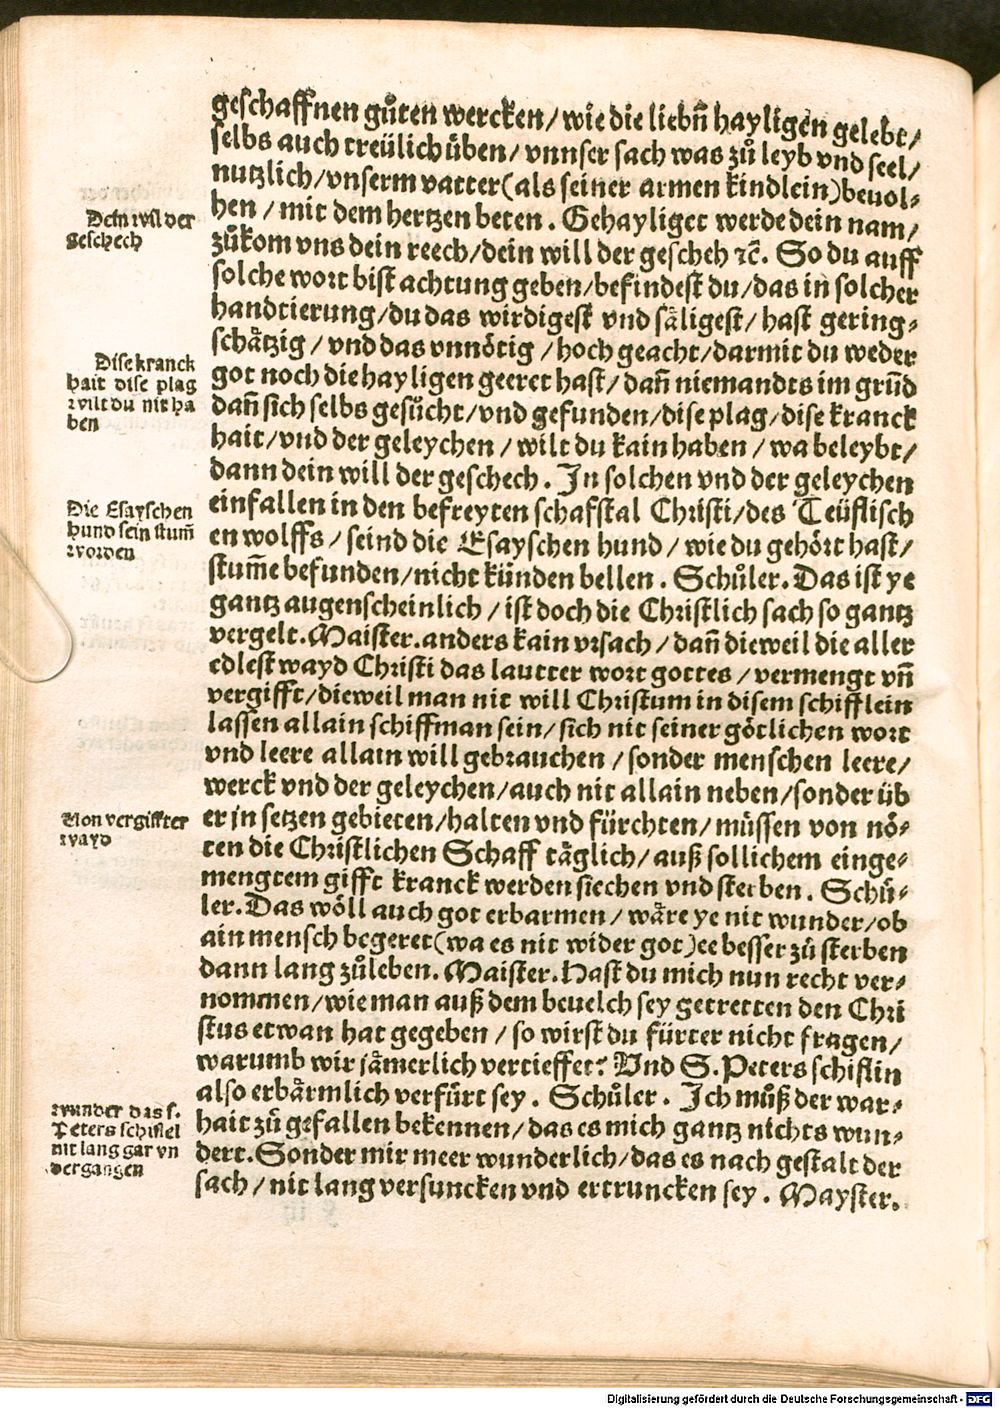 geschaffnen gůten wercken/ wie die liebñ hayligen gelebt/
selbs auch treülich üben/ vnnser sach was zů leyb vnd seel/
nutzlich/ vnserm vatter (als seiner armen kindlein) beuol⸗
hen / mit dem hertzen beten . Gehayliget werde dein nam/
zůkom vns dein reech/ dein will der gescheh ꝛc̄. So du auff
solche wort bist achtung geben/ befindest du/ das in solcher
handtierung/ du das wirdigest vnd säligest/ hast gering⸗
schätzig / vnd das vnnötig / hoch geacht/ darmit du weder
got noch die hayligen geeret hast/ dañ niemandts im grũd
dañ sich selbs gesůcht/ vnd gefunden/ dise plag/ dise kranck
hait/ vnd der geleychen / wilt du kain haben / wa beleybt/
dann dein will der geschech . In solchen vnd der geleychen
einfallen in den befreyten schafstal Christi/ des Teüflisch
en wolffs / seind die Esayschen hund / wie du gehört hast/
stum̃e befunden/ nicht künden bellen . Schůler. Das ist ye
gantz augenscheinlich / ist doch die Christlich sach so gantz
vergelt. Maister. anders kain vrsach / dañ dieweil die aller
edlest wayd Christi das lautter wort gottes / vermengt vñ
vergifft/ dieweil man nit will Christum in disem schifflein
lassen allain schiffman sein/ sich nit seiner götlichen wort
vnd leere allain will gebrauchen / sonder menschen leere/
werck vnd der geleychen/ auch nit allain neben/ sonder üb
er jn setzen gebieten/ halten vnd fürchten/ müssen von nö⸗
ten die Christlichen Schaff täglich/ auß sollichem einge⸗
mengtem gifft kranck werden siechen vnd sterben . Schů⸗
ler. Das wöll auch got erbarmen / wäre ye nit wunder/ ob
ain mensch begeret (wa es nit wider got) ee besser zů sterben
dann lang zůleben. Maister. Hast du mich nun recht ver⸗
nommen/ wie man auß dem beuelch sey getretten den Chri
stus etwan hat gegeben / so wirst du fürter nicht fragen/
warumb wir jämerlich vertieffet? Vnd S. Peters schiflin
also erbärmlich verfürt sey . Schůler . Ich můß der war⸗
hait zů gefallen bekennen/ das es mich gantz nichts wun⸗
dert. Sonder mir meer wunderlich/ das es nach gestalt der
sach / nit lang versuncken vnd ertruncken sey . Mayster.
Dein wil der
geschech
Dise kranck
hait dise plag
wilt du nit ha
ben
Die Esayschen
hund sein stum̃
worden
Von vergiffter
wayd
wunder das s.
Peters schiflel
nit lang gar vn
dergangen
Digitalisierung gefördert durch die Deutsche Forschungsgemeinschaft - DFG